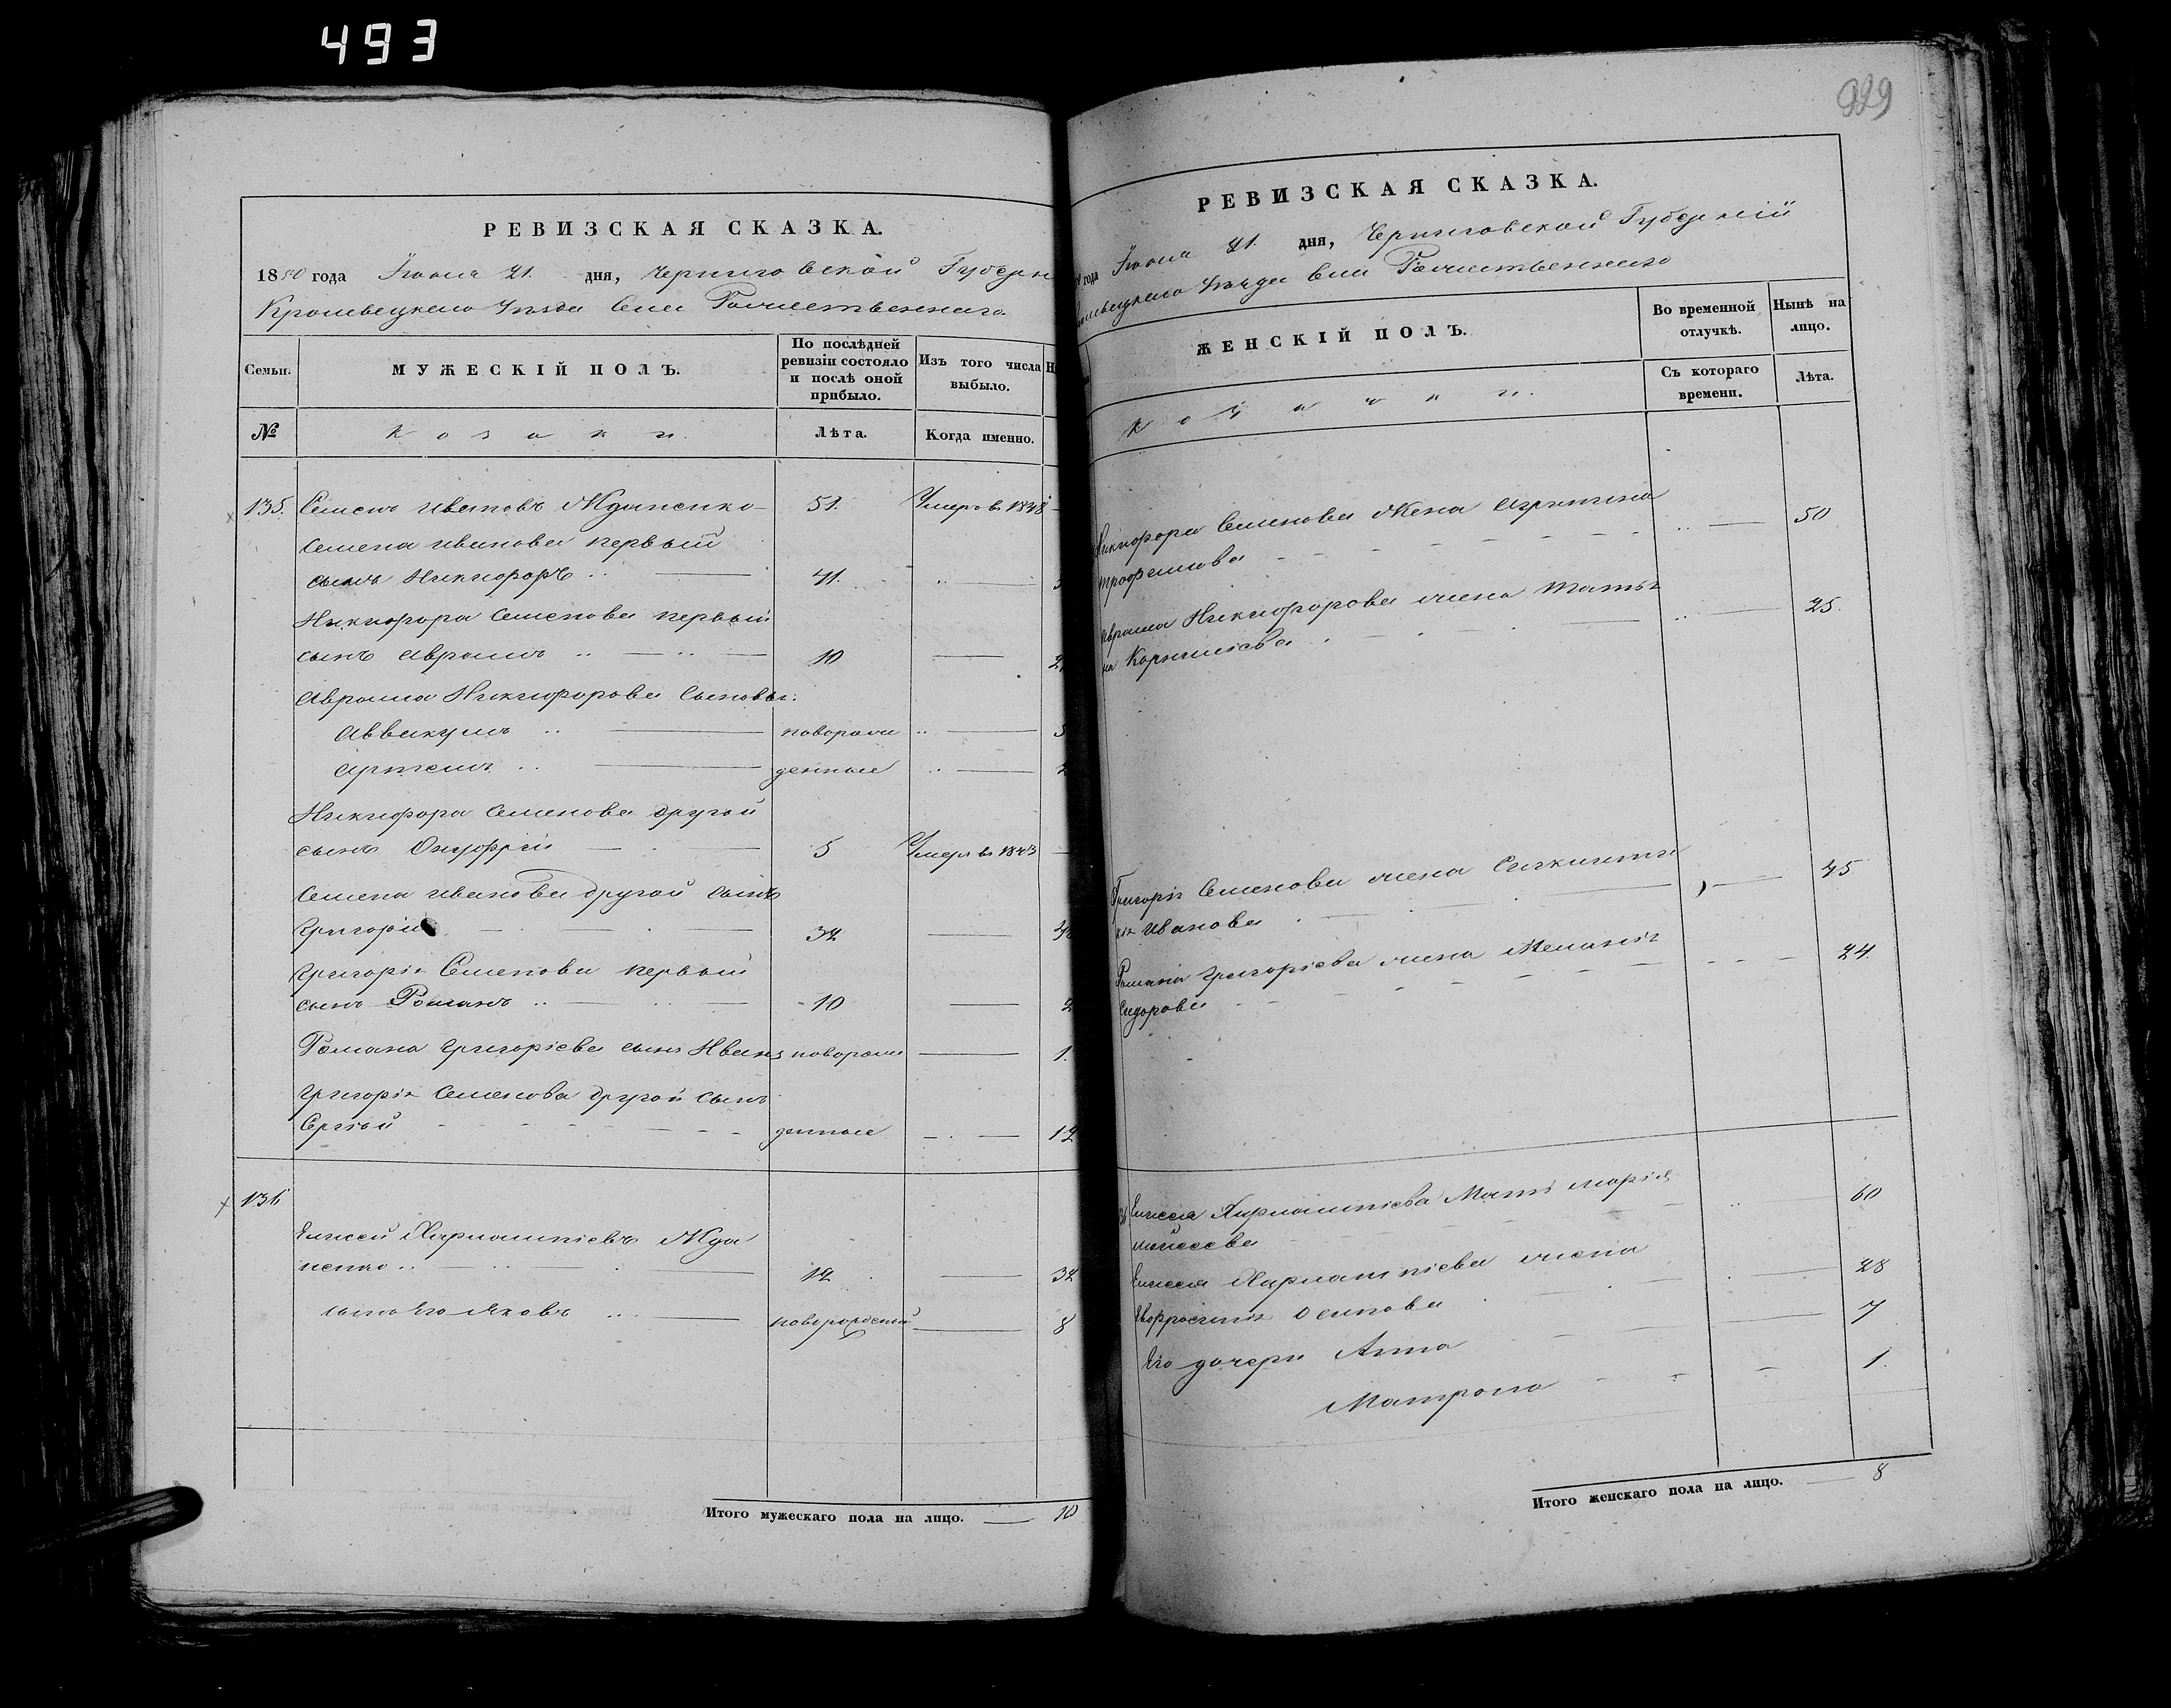 493
РЕВИЗСКАЯ СКАЗКА.
1850 года Іюля 21 дня, Черниговской Губерн
Кролевецкаго Уѣзда Села Рожественнаго
Семьи.
МУЖЕСКІЙ ПОЛЪ.
По послѣдней ревизіи состояло и послѣ оной прибыло.
Изъ того числа выбыло.
Н
№
Козаки.
Лѣта.
Когда именно.
135. Семенъ Ивановъ Жданенко 51. Умеръ в 1848
Семена Иванова первый
сынъ Никифоръ 41.
Никифора Семенова первый
сынъ Аврамъ 10
Аврама Никифорова сыновья:
Аввакумъ новорож
Артемъ денные
Никифора Семенова другой
сынъ Онуфрій 5 Умеръ в 1843
Семена Иванова другой сынъ
Григорій 32
Григорія Семенова первый
сынъ Романъ 10
Романа Григоріева сынъ Иванъ новорож 1.
Григорія Семенова другой сынъ
Сергѣй денные 12
136
Елисей Харлампіевъ Жда
ненко 12 32
сынъ его Яковъ новорожденый 8
Итого мужескаго пола на лицо. 10
929
РЕВИЗСКАЯ СКАЗКА.
года Іюля 21 дня, Черниговской Губерніи
Уѣзда Села Рожественнаго
ЖЕНСКІЙ ПОЛЪ.
Во временной отлучкѣ.
Нынѣ на лицо.
Козачки.
Съ котораго времени.
Лѣта.
Никифора Семенова жена Агрипина 50
Трофимова
Аврама Никифорова жена Татья 25.
на Корнліева
Григорія Семенова жена Синклити 45
кія Иванова
Романа Григоріева жена Меланія 24.
Сидорова
Елисея Харлампіева Мать Марія 60
Мойсеева
Елисея Харлампіева жена 28
Евфросинія Осипова
Его дочери Анна 7
Матрона 1.
Итого женскаго пола на лицо. 8